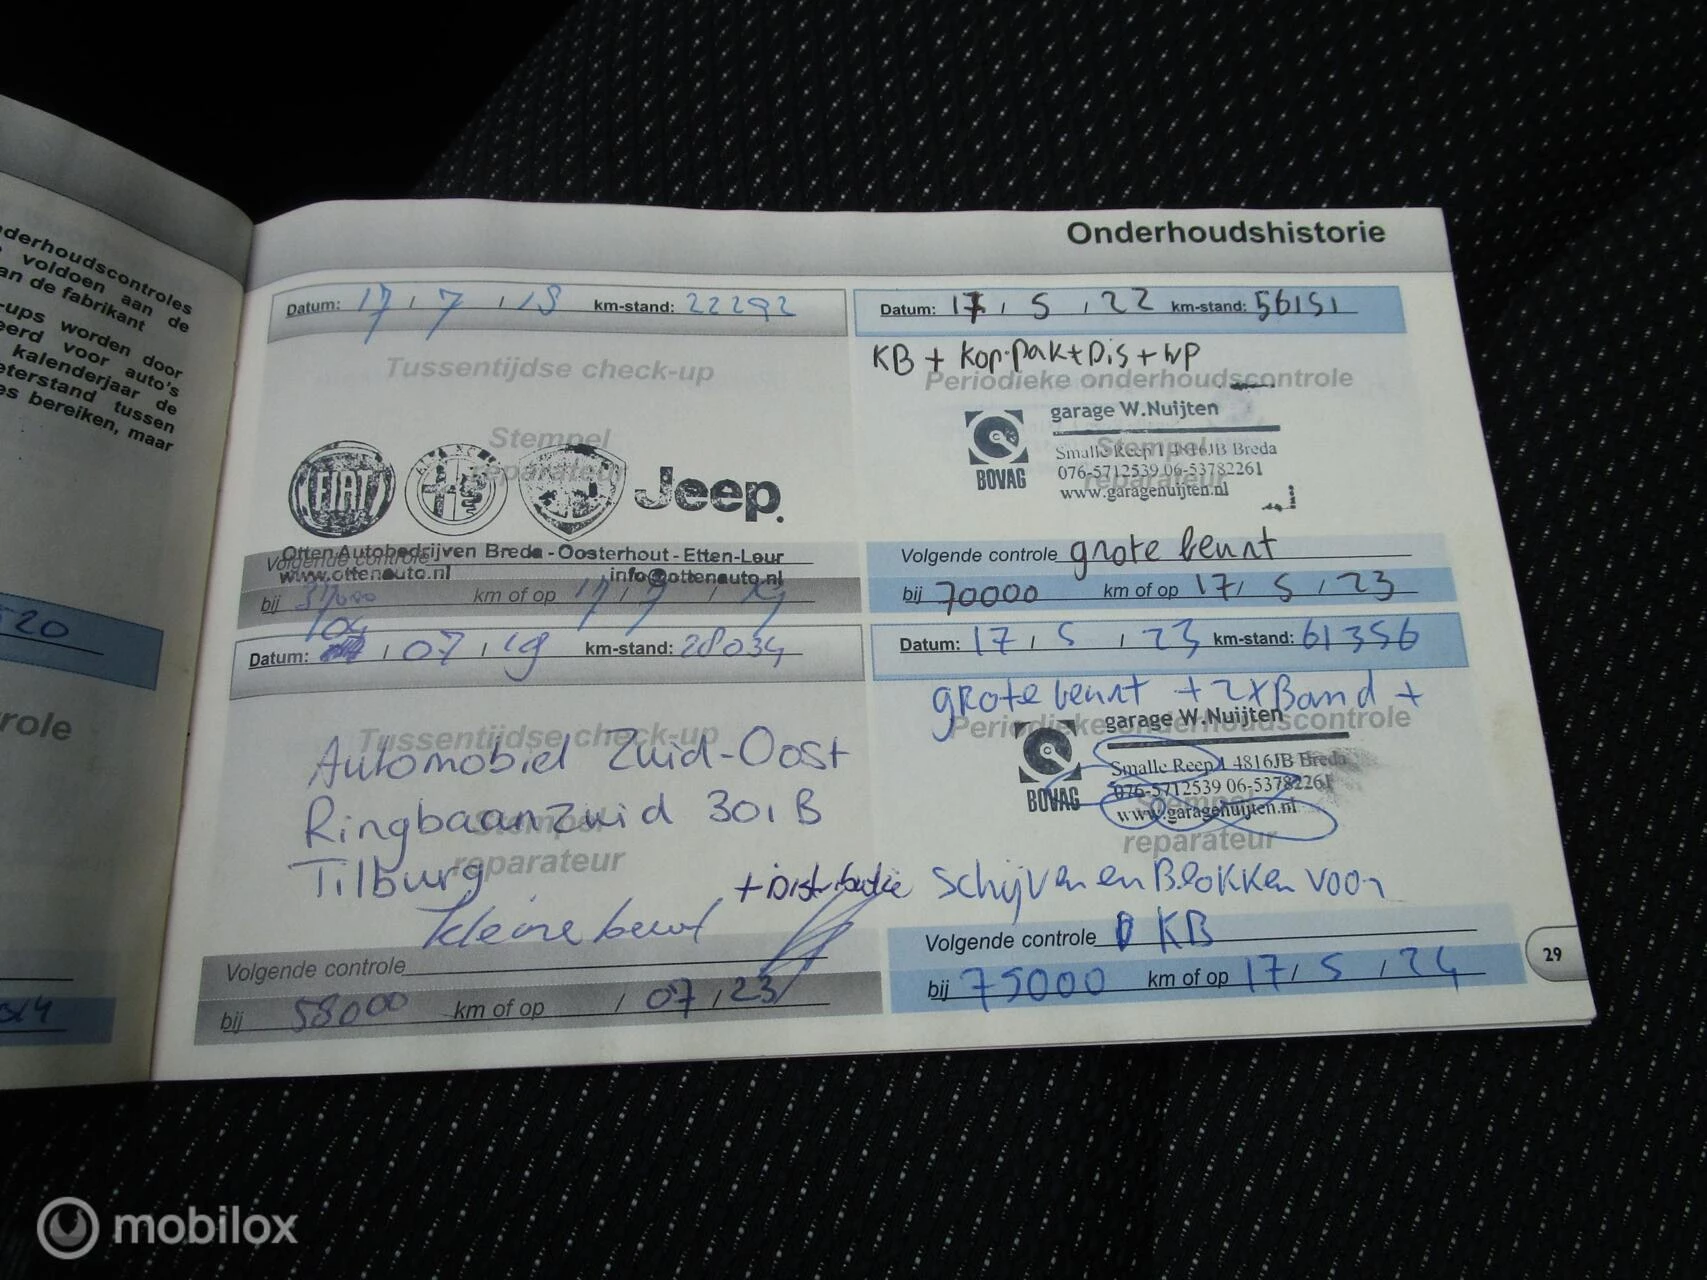 nderhoudscontroles
voldoen aan de
an de fabrikant
-ups worden door
eerd voor auto's
kalenderjaar de
eterstand tussen
es bereiken, maar
520
role
Onderhoudshistorie
Datum: 17 / 7 / 18 km-stand: 22292
Tussentijdse check-up
Stempel
reparateur
FIAT
Jeep.
Otten Autobedrijven Breda - Oosterhout - Etten-Leur
www.ottenauto.nl info@ottenauto.nl
Volgende controle
bij 37000 km of op 17 / 7 / 19
Datum: / 07 / 19 km-stand: 28034
Tussentijdse check-up
Automobiel Zuid-Oost
Ringbaan Zuid 301 B
Stempel
Tilburg
reparateur
kleine beurt
+ Distributie
Volgende controle
bij 58000 km of op / 07 / 23
Datum: 17 / 5 / 22 km-stand: 56151
KB + kop.pak + Dis + WP
Periodieke onderhoudscontrole
garage W.Nuijten
Stempel
Smalle Reep 1 4816JB Breda
076-5712539 06-53782261
reparateur
www.garagenuijten.nl
BOVAG
Volgende controle grote beurt
bij 70000 km of op 17 / 5 / 23
Datum: 17 / 5 / 23 km-stand: 61356
grote beurt + 2x Band +
Periodieke onderhoudscontrole
garage W.Nuijten
Smalle Reep 1 4816JB Breda
076-5712539 06-53782261
Stempel
www.garagenuijten.nl
BOVAG
reparateur
Schijven en Blokken voor
Volgende controle KB
bij 75000 km of op 17 / 5 / 24
29
mobilox